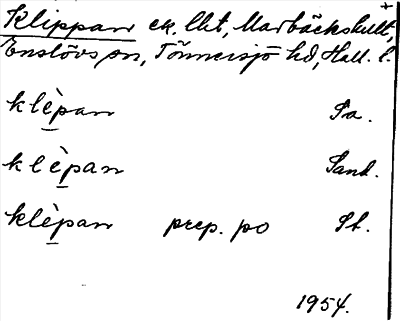 +
Klippan ck. lht, Marbäckshult,
Enslövs sn, Tönnersjö hd, Hall. l.
klèp̱an Pa.
klèp̱an Sand.
klèp̱an prep. po St.
1954.